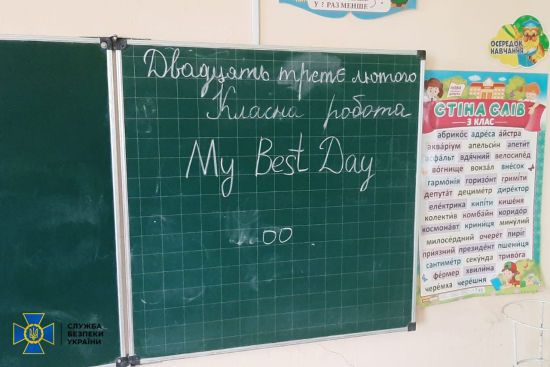 У ? РАЗ МЕНШЕ
ОСЕРЕДОК
НАВЧАННЯ
Двадцять третє лютого
Класна робота
My Best Day
СТІНА СЛІВ
3 КЛАС
абрикос адреса айстра
акваріум апельсин апетит
асфальт вдячний велосипед
вогнище вокзал внесок
гармонія горизонт гриміти
депутат дециметр директор
електрика кипіти кишеня
колектив комбайн коридор
космонавт криниця минулий
милосердний очерет пиріг
приязний президент пшениця
сантиметр секунда тривога
фермер хвилина
черемха черешня
СЛУЖБА
БЕЗПЕКИ
УКРАЇНИ